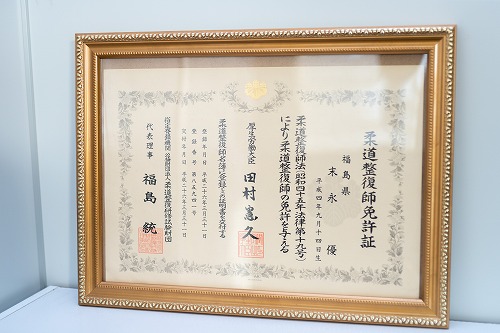 柔道整復師免許証
福島県
末永 優
平成四年九月十四日生
柔道整復師法(昭和四十五年法律第十九号)
により柔道整復師の免許を与える
厚生労働大臣 田村憲久
柔道整復師名簿に登録しこの証明書を交付する
登録年月日 平成二十六年三月三十一日
登録番号
交付年月日 平成二十六年三月三十一日
指定登録機関 公益財団法人柔道整復研修試験財団
代表理事 福島 統